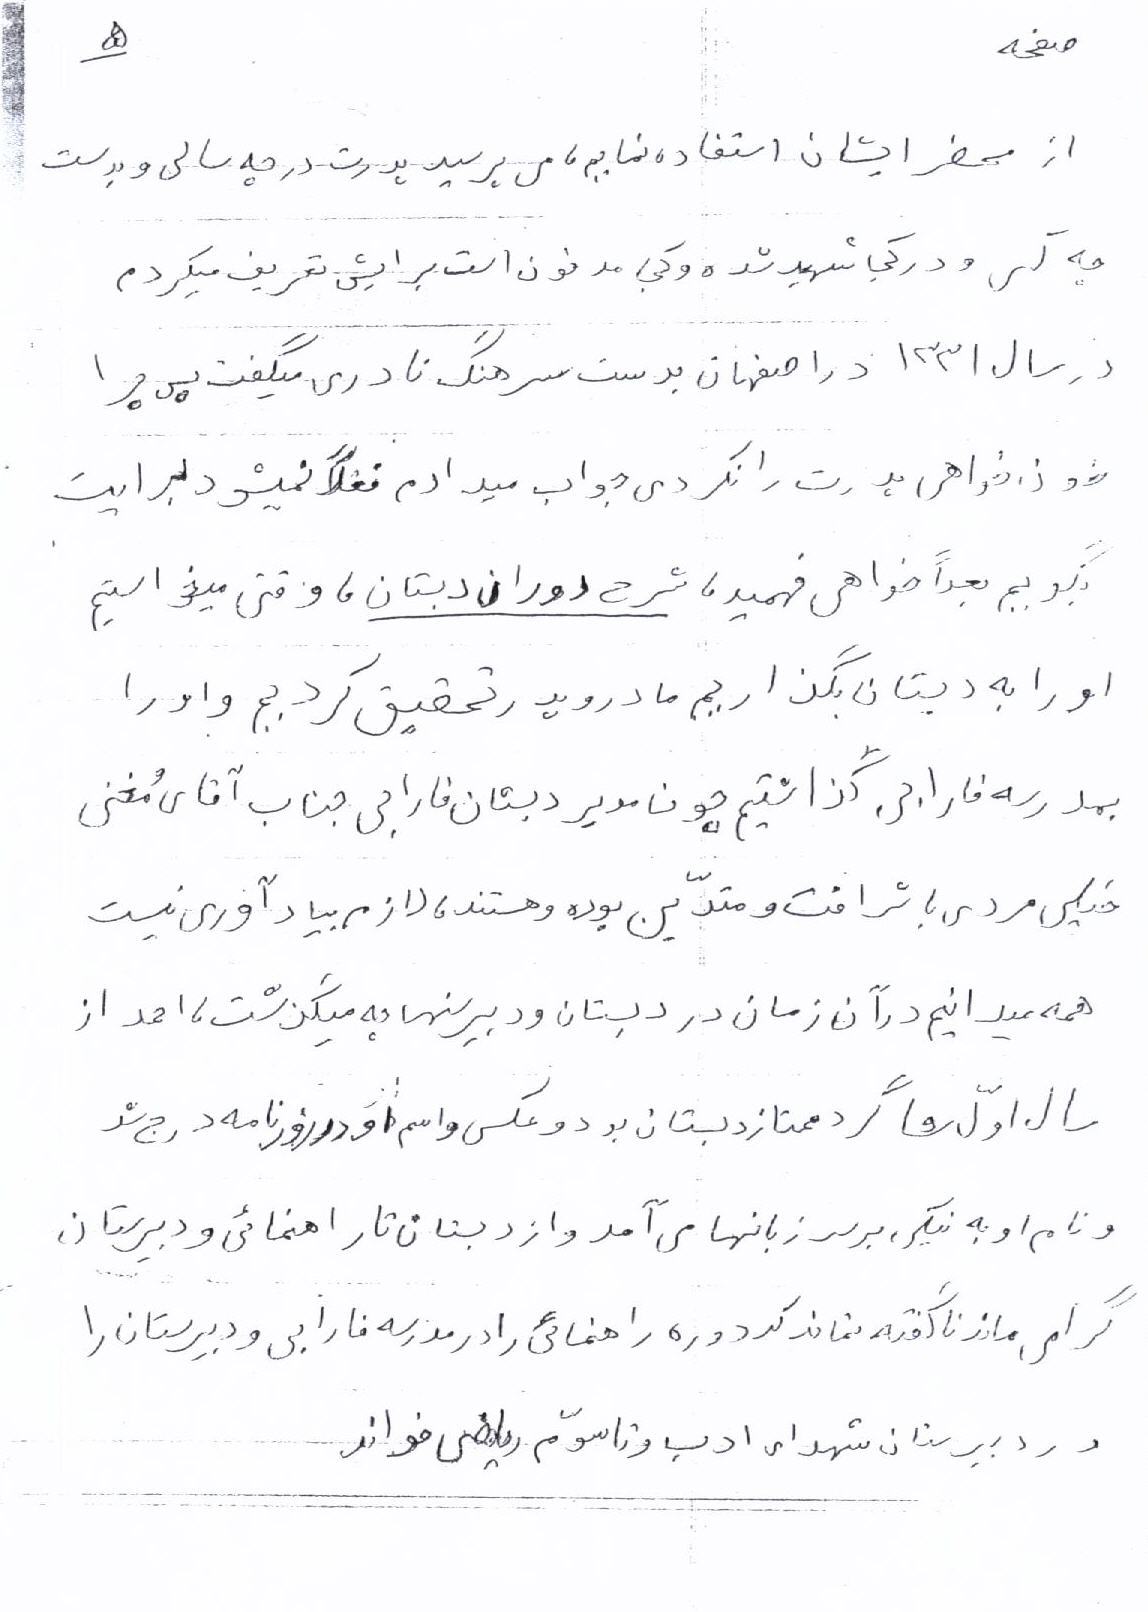 صفحه ۵
از محضر ایشان استفاده نمایم، می پرسید پدرت در چه سالی و بدست
چه کسی و در کجا شهید شده و کجا مدفون است برایش تعریف میکردم
در سال ۱۳۳۱ در اصفهان بدست سرهنگ نادری میگفت پس چرا
خونخواهی پدرت را نکردی جواب میدادم فعلاً نمیشود برایت
بگویم بعداً خواهی فهمید، شرح دوران دبستان، وقتی میخواستیم
او را به دبستان بگذاریم مادر و پدر تحقیق کردیم و او را
بمدرسه فارابی گذاشتیم چون مدیر دبستان فارابی جناب آقای مُغنی
خیلی مردی با شرافت و متدیّن بوده و هستند، لازم بیادآوری نیست
همه میدانیم در آن زمان در دبستان و دبیرستانها چه میگذشت، احمد از
سال اوّل شاگرد ممتاز دبستان بود و عکس و اسم او در روزنامه درج شد
و نام او به نیکی بر سر زبانها می آمد و از دبستان تا راهنمائی و دبیرستان
گرامی ماند ناگفته نماند که دوره راهنمائی را در مدرسه فارابی و دبیرستان را
در دبیرستان شهدای ادب و تا سوّم ریاضی خواند